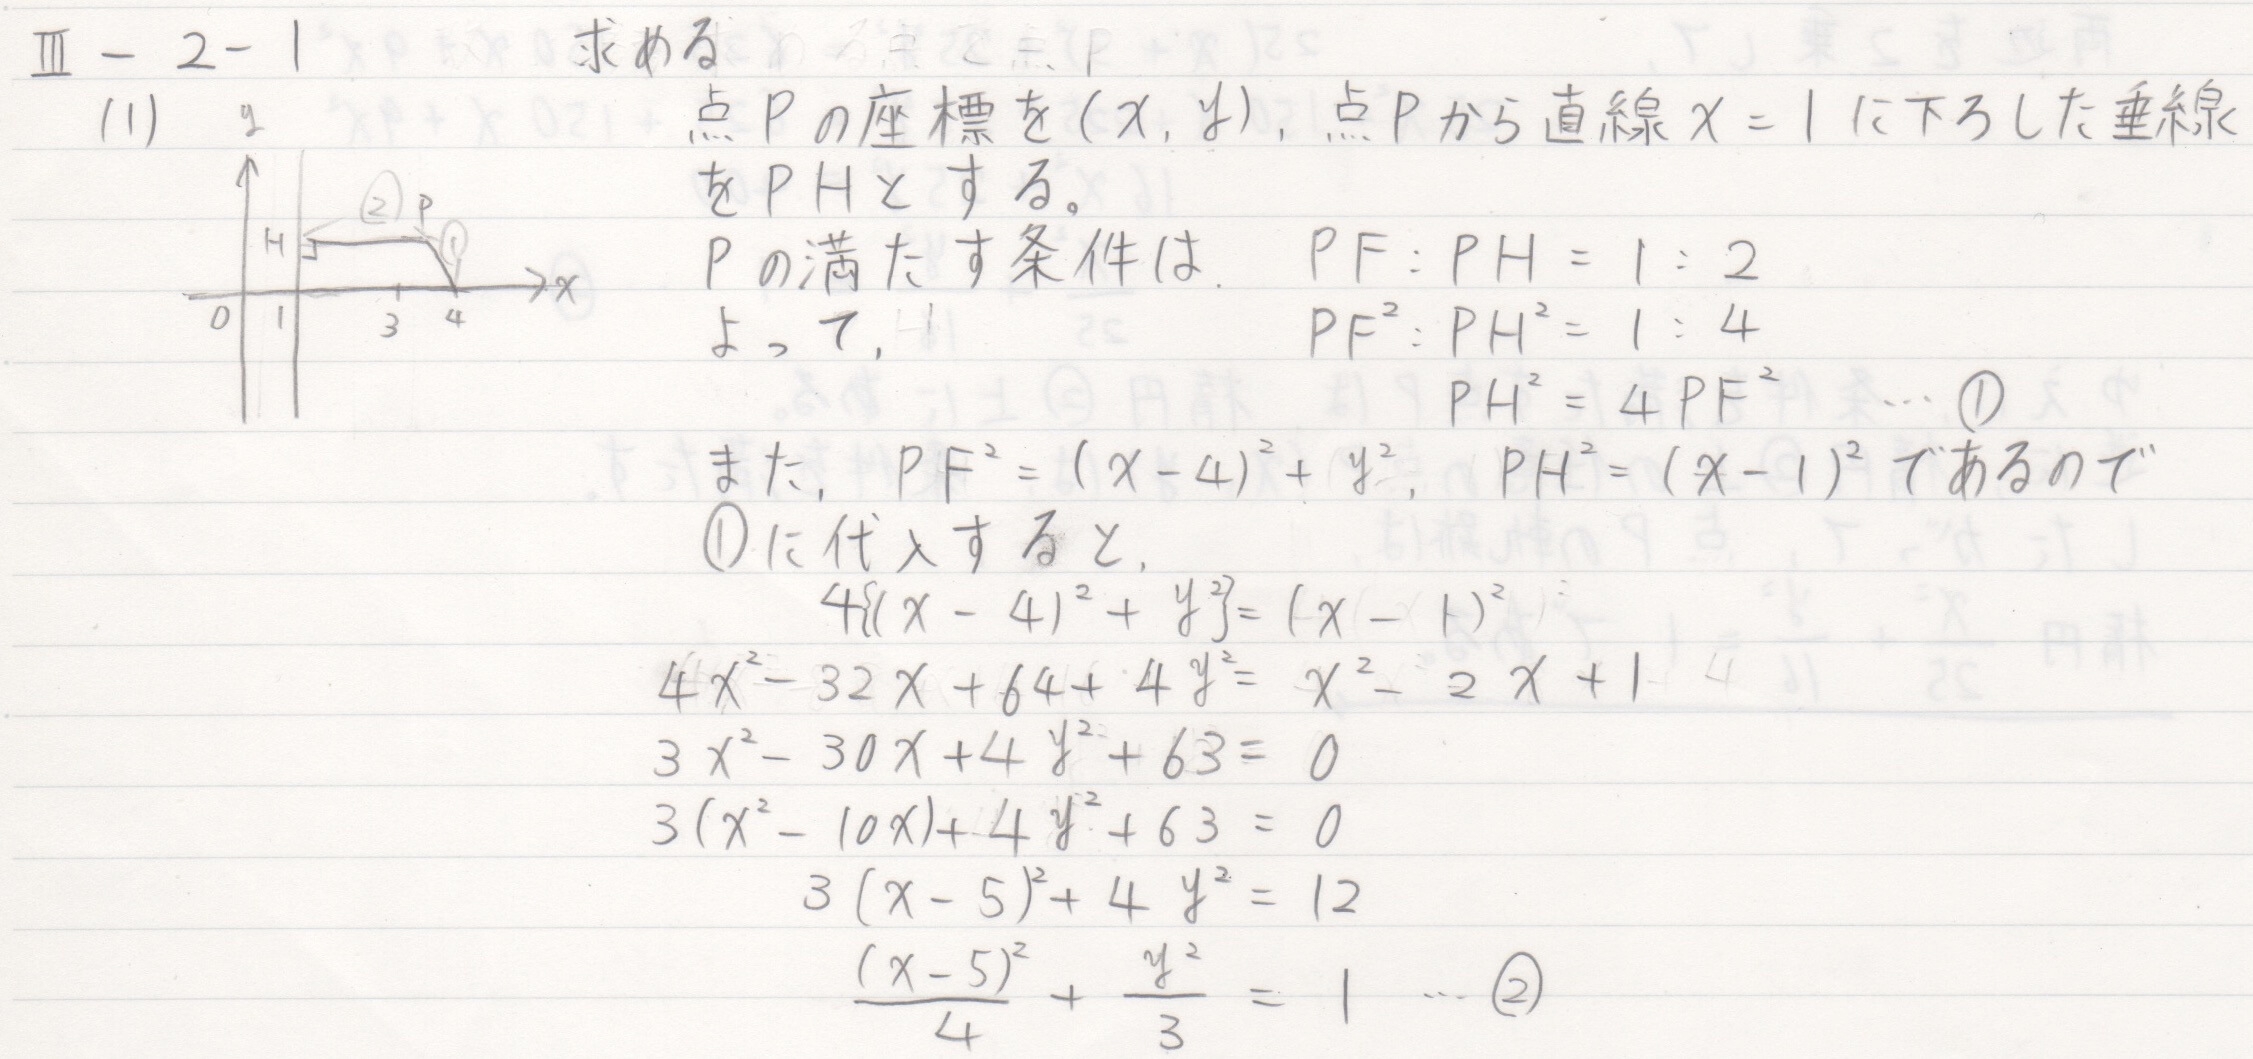 Ⅲ - 2 - 1 求める
(1) 点Pの座標を(x, y), 点Pから直線x = 1に下ろした垂線
をPHとする。
y
② P
H ①
0 1 3 4 x
Pの満たす条件は. PF : PH = 1 : 2
よって, PF² : PH² = 1 : 4
PH² = 4PF² … ①
また, PF² = (x-4)² + y², PH² = (x-1)² であるので
①に代入すると,
4{(x-4)² + y²} = (x-1)²
4x² - 32x + 64 + 4y² = x² - 2x + 1
3x² - 30x + 4y² + 63 = 0
3(x² - 10x) + 4y² + 63 = 0
3(x-5)² + 4y² = 12
(x-5)²/4 + y²/3 = 1 … ②